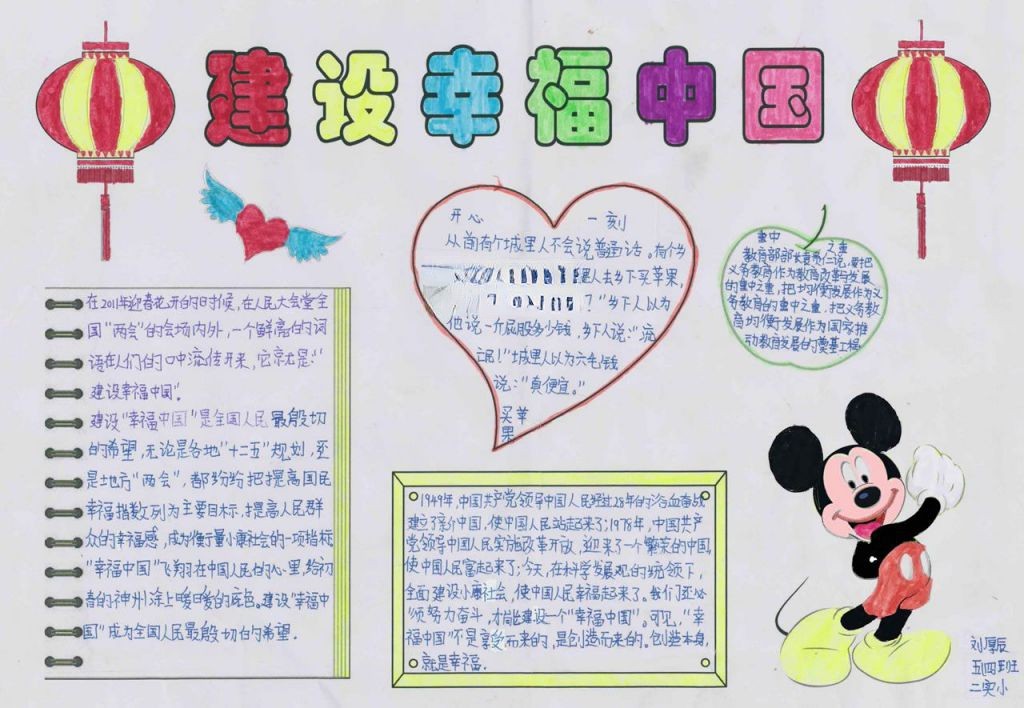 建设幸福中国
在2011年迎春花开的时候,在人民大会堂全
国“两会”的会场内外,一个鲜亮的词
语在人们的口中流传开来,它就是:“
建设幸福中国”.
建设“幸福中国”是全国人民最殷切
的希望,无论是各地“十二五”规划,还
是地方“两会”,都纷纷把提高国民
幸福指数列为主要目标,提高人民群
众的幸福感,成为衡量小康社会的一项指标
“幸福中国”飞翔在中国人民的心里,给初
春的神州涂上暖暖的底色。建设“幸福中
国”成为全国人民最殷切的希望.
开心 一刻
从前有个城里人不会说普通话。有个
里人去乡下买苹果,
?”乡下人以为
他说一斤屁股多少钱,乡下人说:“流
氓!”城里人以为六毛钱
说:“真便宜。”
买苹
果
重中 之重
教育部部长袁贵仁说,要把
义务教育作为教育改革与发展
的重中之重,把均衡发展作为义
务教育的重中之重,把义务教
育均衡发展作为国家推
动教育发展的奠基工程
1949年,中国共产党领导中国人民经过28年的浴血奋战
建立了新中国,使中国人民站起来了;1978年,中国共产
党领导中国人民实施改革开放,迎来了一个繁荣的中国,
使中国人民富起来了;今天,在科学发展观的统领下,
全面建设小康社会,使中国人民幸福起来了。我们还必
须努力奋斗,才能建设一个“幸福中国”。可见,“幸
福中国”不是享受而来的,是创造而来的。创造本身,
就是幸福.
刘厚辰
五四班
二实小